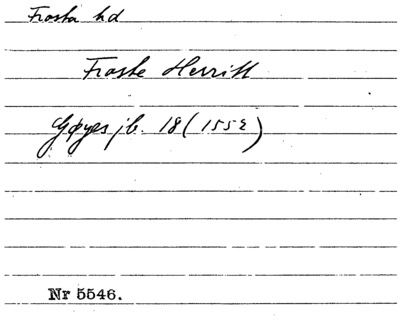 Frosta hd
Froste Herritt
Gøyes jb. 18 (1552)
Nr 5546.